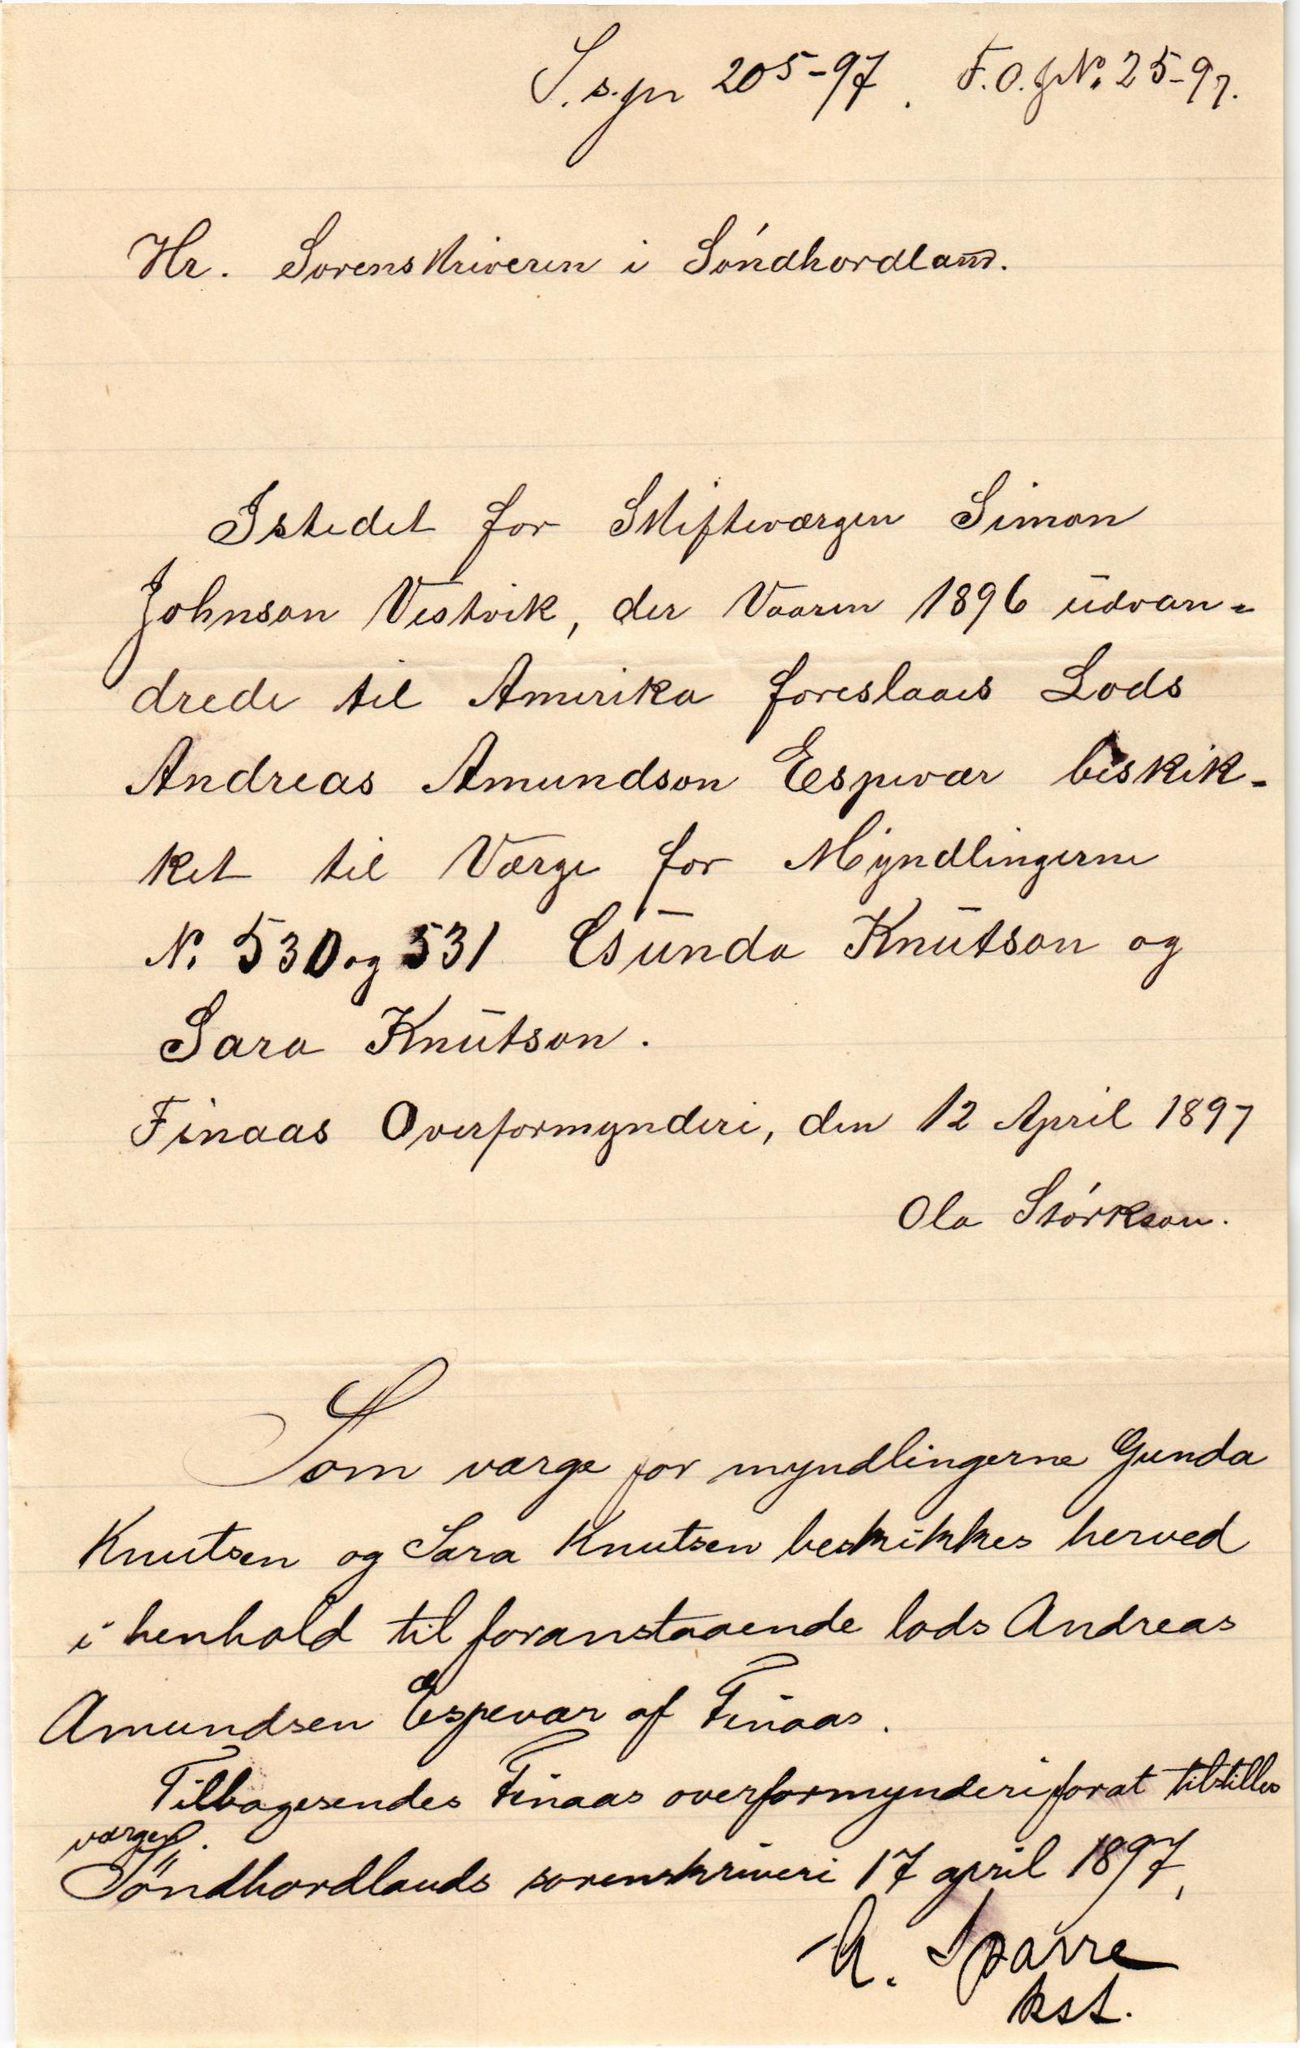 S. s. jn 205-97. F.O. JNo. 25-97.
Hr. Sorenskriveren i Söndhordland.
Istedet for Skifteværgen Simon
Johnson Vestvik, der Vaaren 1896 udvan-
drede til Amerika foreslaaes Lods
Andreas Amundson Espevær beskik-
ket til Værge for Myndlingerne
No. 530 og 531 Gunda Knutson og
Sara Knutson.
Finaas Overformynderi, den 12 April 1897
Ola Störkson.
Som værge for myndlingerne Gunda
Knutsen og Sara Knutsen beskikkes herved
i henhold til foranstaaende lods Andreas
Amundsen Espevær af Finaas.
Tilbagesendes Finaas overformynderi forat tilstilles
værgen.
Söndhordlands sorenskriveri 17 april 1897,
Sparre
kst.